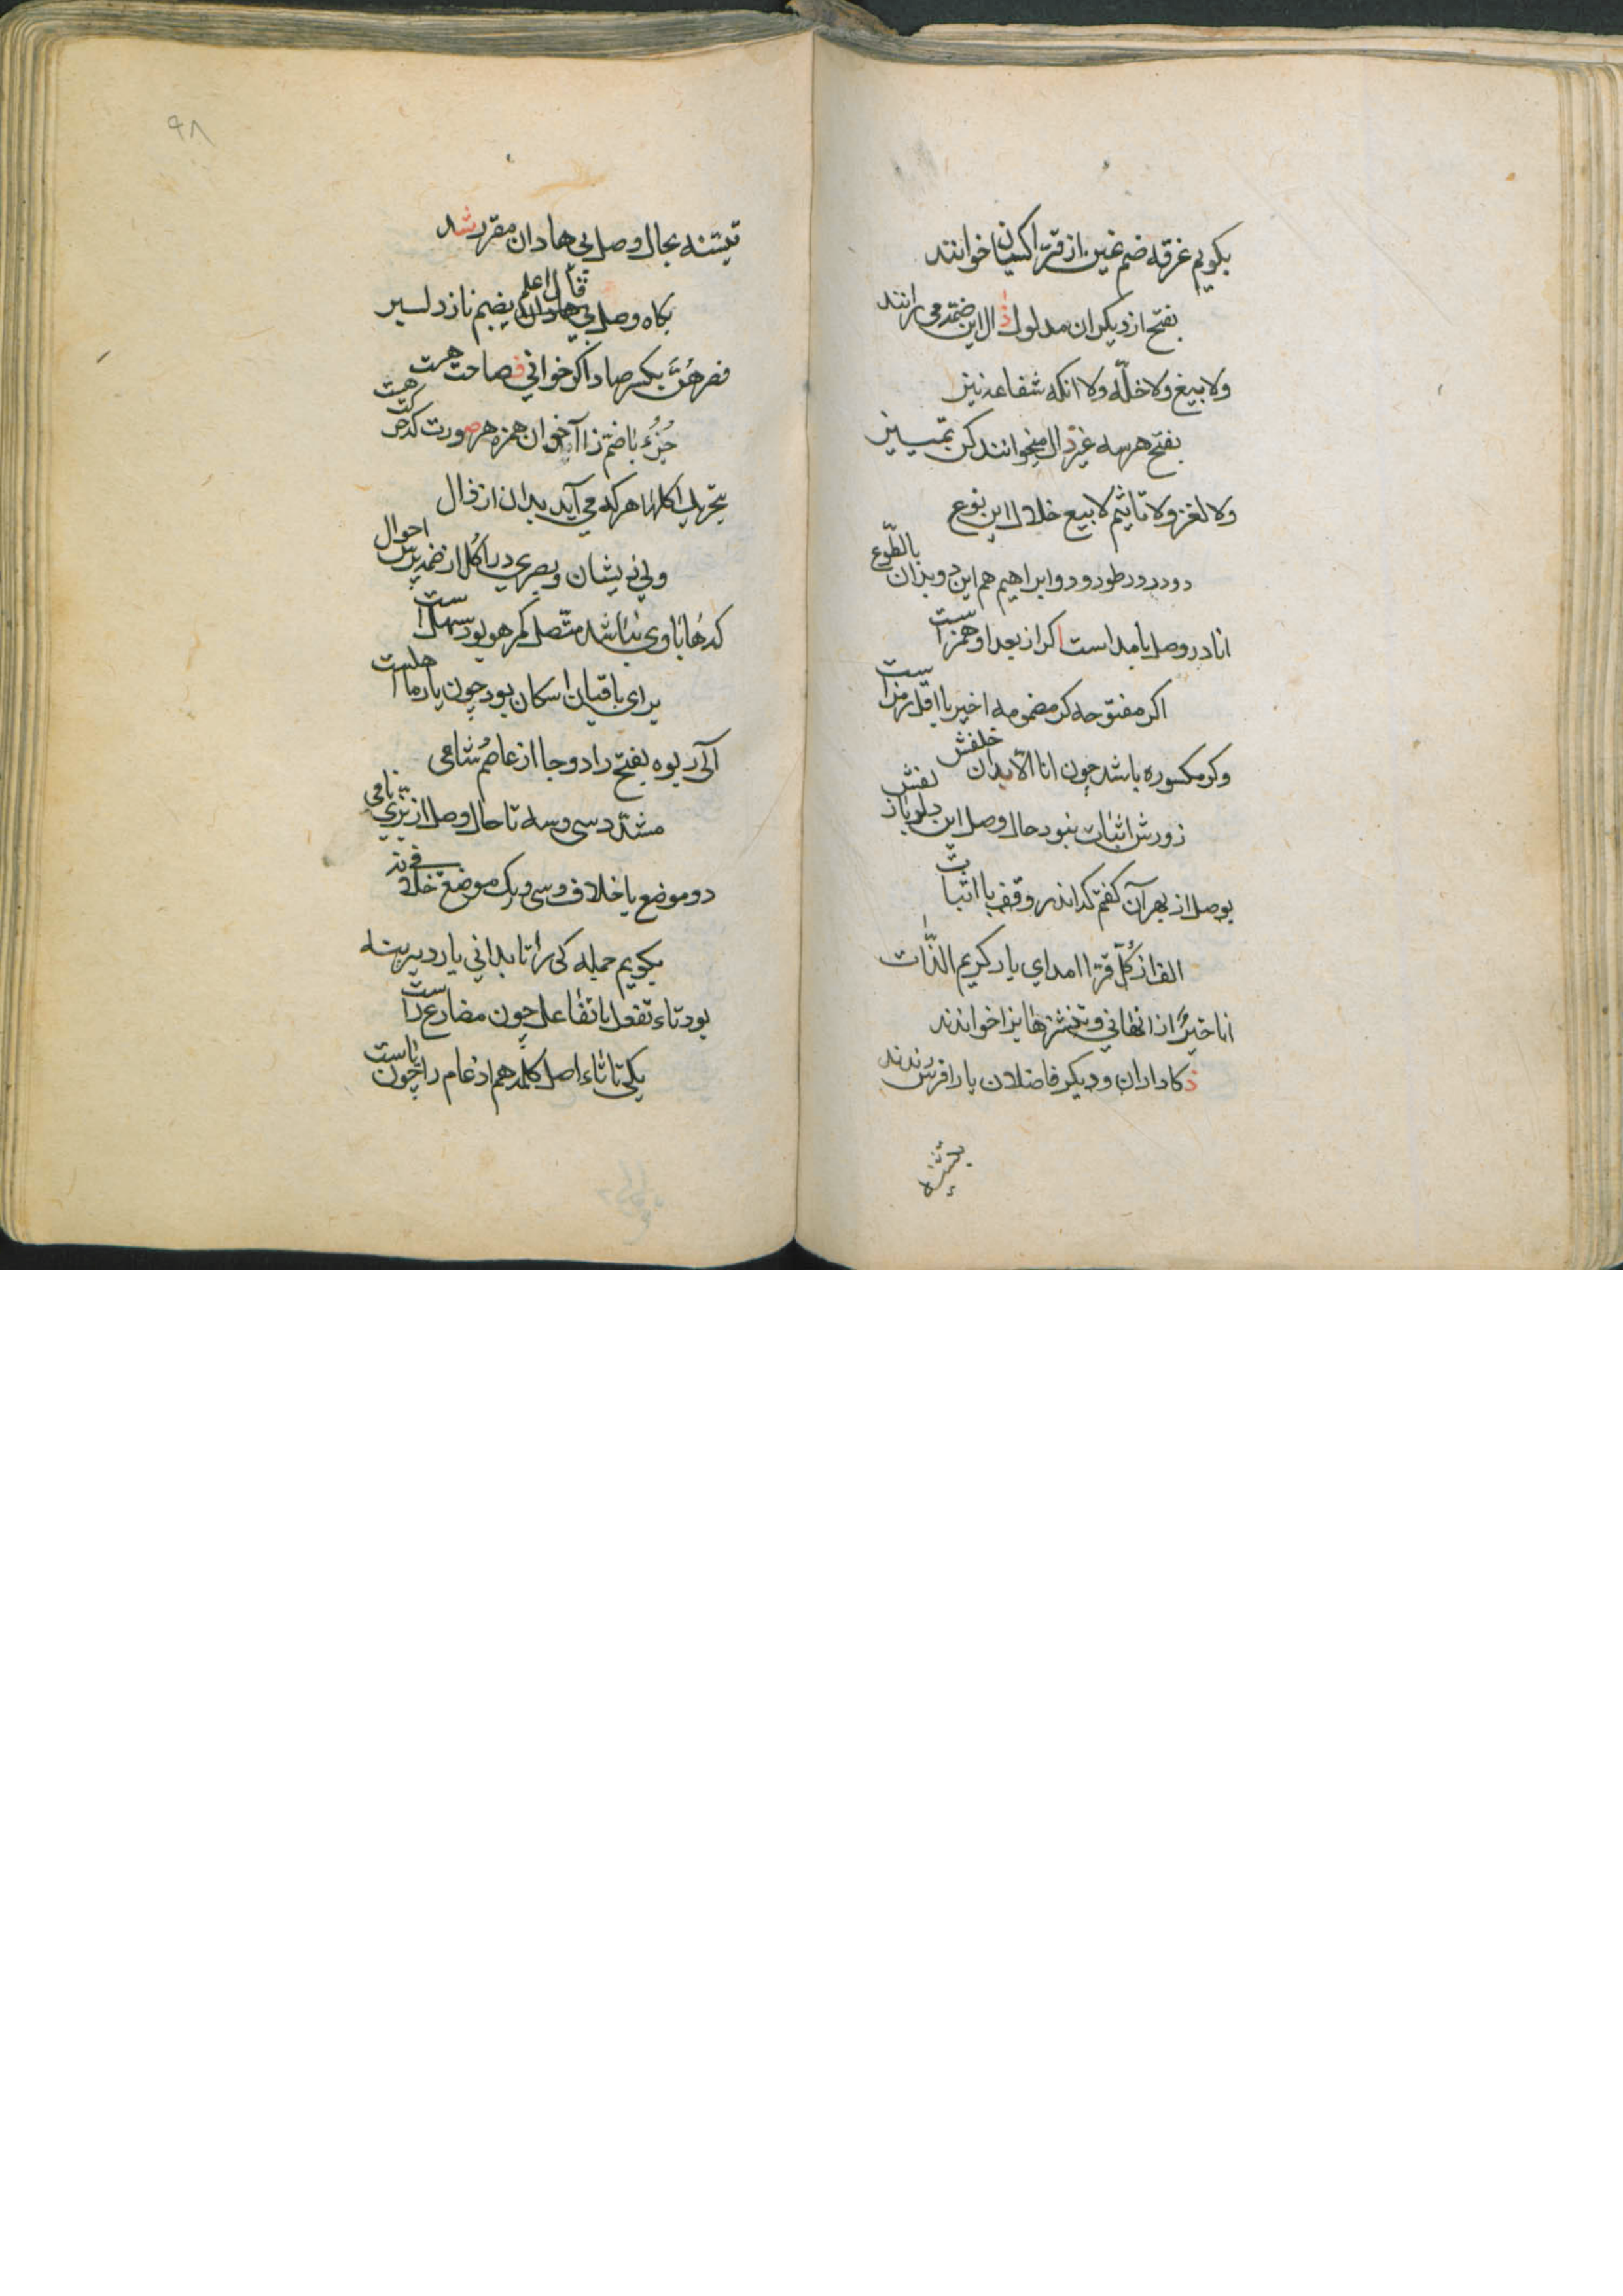 بکویم غرفه ضم غین از قرّا کسان خوانند
بفتح از دیکران مدلول ذال این ضمّه می رانند
ولا بیع ولا خلّه ولا انکه شفاعه نیز
بفتح هر سه غیر دال میخوانند کن تمییز
ولا لغو ولا تاثیم لا بیع خلال این نوع
دو در طور و دو ابراهیم هم این دو بدان بالطّوع
انا در وصل با مد است اکر از بعد او همزاست
اکر مفتوحه کر مضمومه اخیر با اقل رمزاست
وکر مکسوره باشد چون انا الّا بدان خلفش
ز ورش اثبات نبود حال وصل این
بوصل از بهر آن کفتم که اندر وقف با اثبات
الف از کلّ قرّا امد ای یار کریم الذّات
انا خیرٌ از انهانی و ننشزها بزا خواندند
ذکاداران و دیکر فاضلان با را
یتسنه
۹۸
یتسنه بحال وصل بی هادان مقرر شد
بکاه وصل بی هادان قال اعلم
فصرهنّ بکسر صاد اکر خوانی فصاحت هست
جُزُءْ با ضم زا آ خوان همزه هر صورت که
بتحریک اکلها هر که می آید بدان از ذال
ولی نی یشان و بصری در اُکُل از ضمّه پرس احوال
که ها با وی نباشد متّصل کر هو بود سهل است
برای باقیان اسکان بود چون یار ما اهلست
الی ربوه بفتح را دو جا از عاصم شامی
مشدّد سی و سه تا حال وصل از بزّی نامی
دو موضع با خلاف و سی و یک موضع
بکویم جمله کی را تا بدانی یار دیرینه
بود تاء تفعل یا تفاعل چون مضارع راست
یکی تا تاء اصل کلمه هم ادغام را